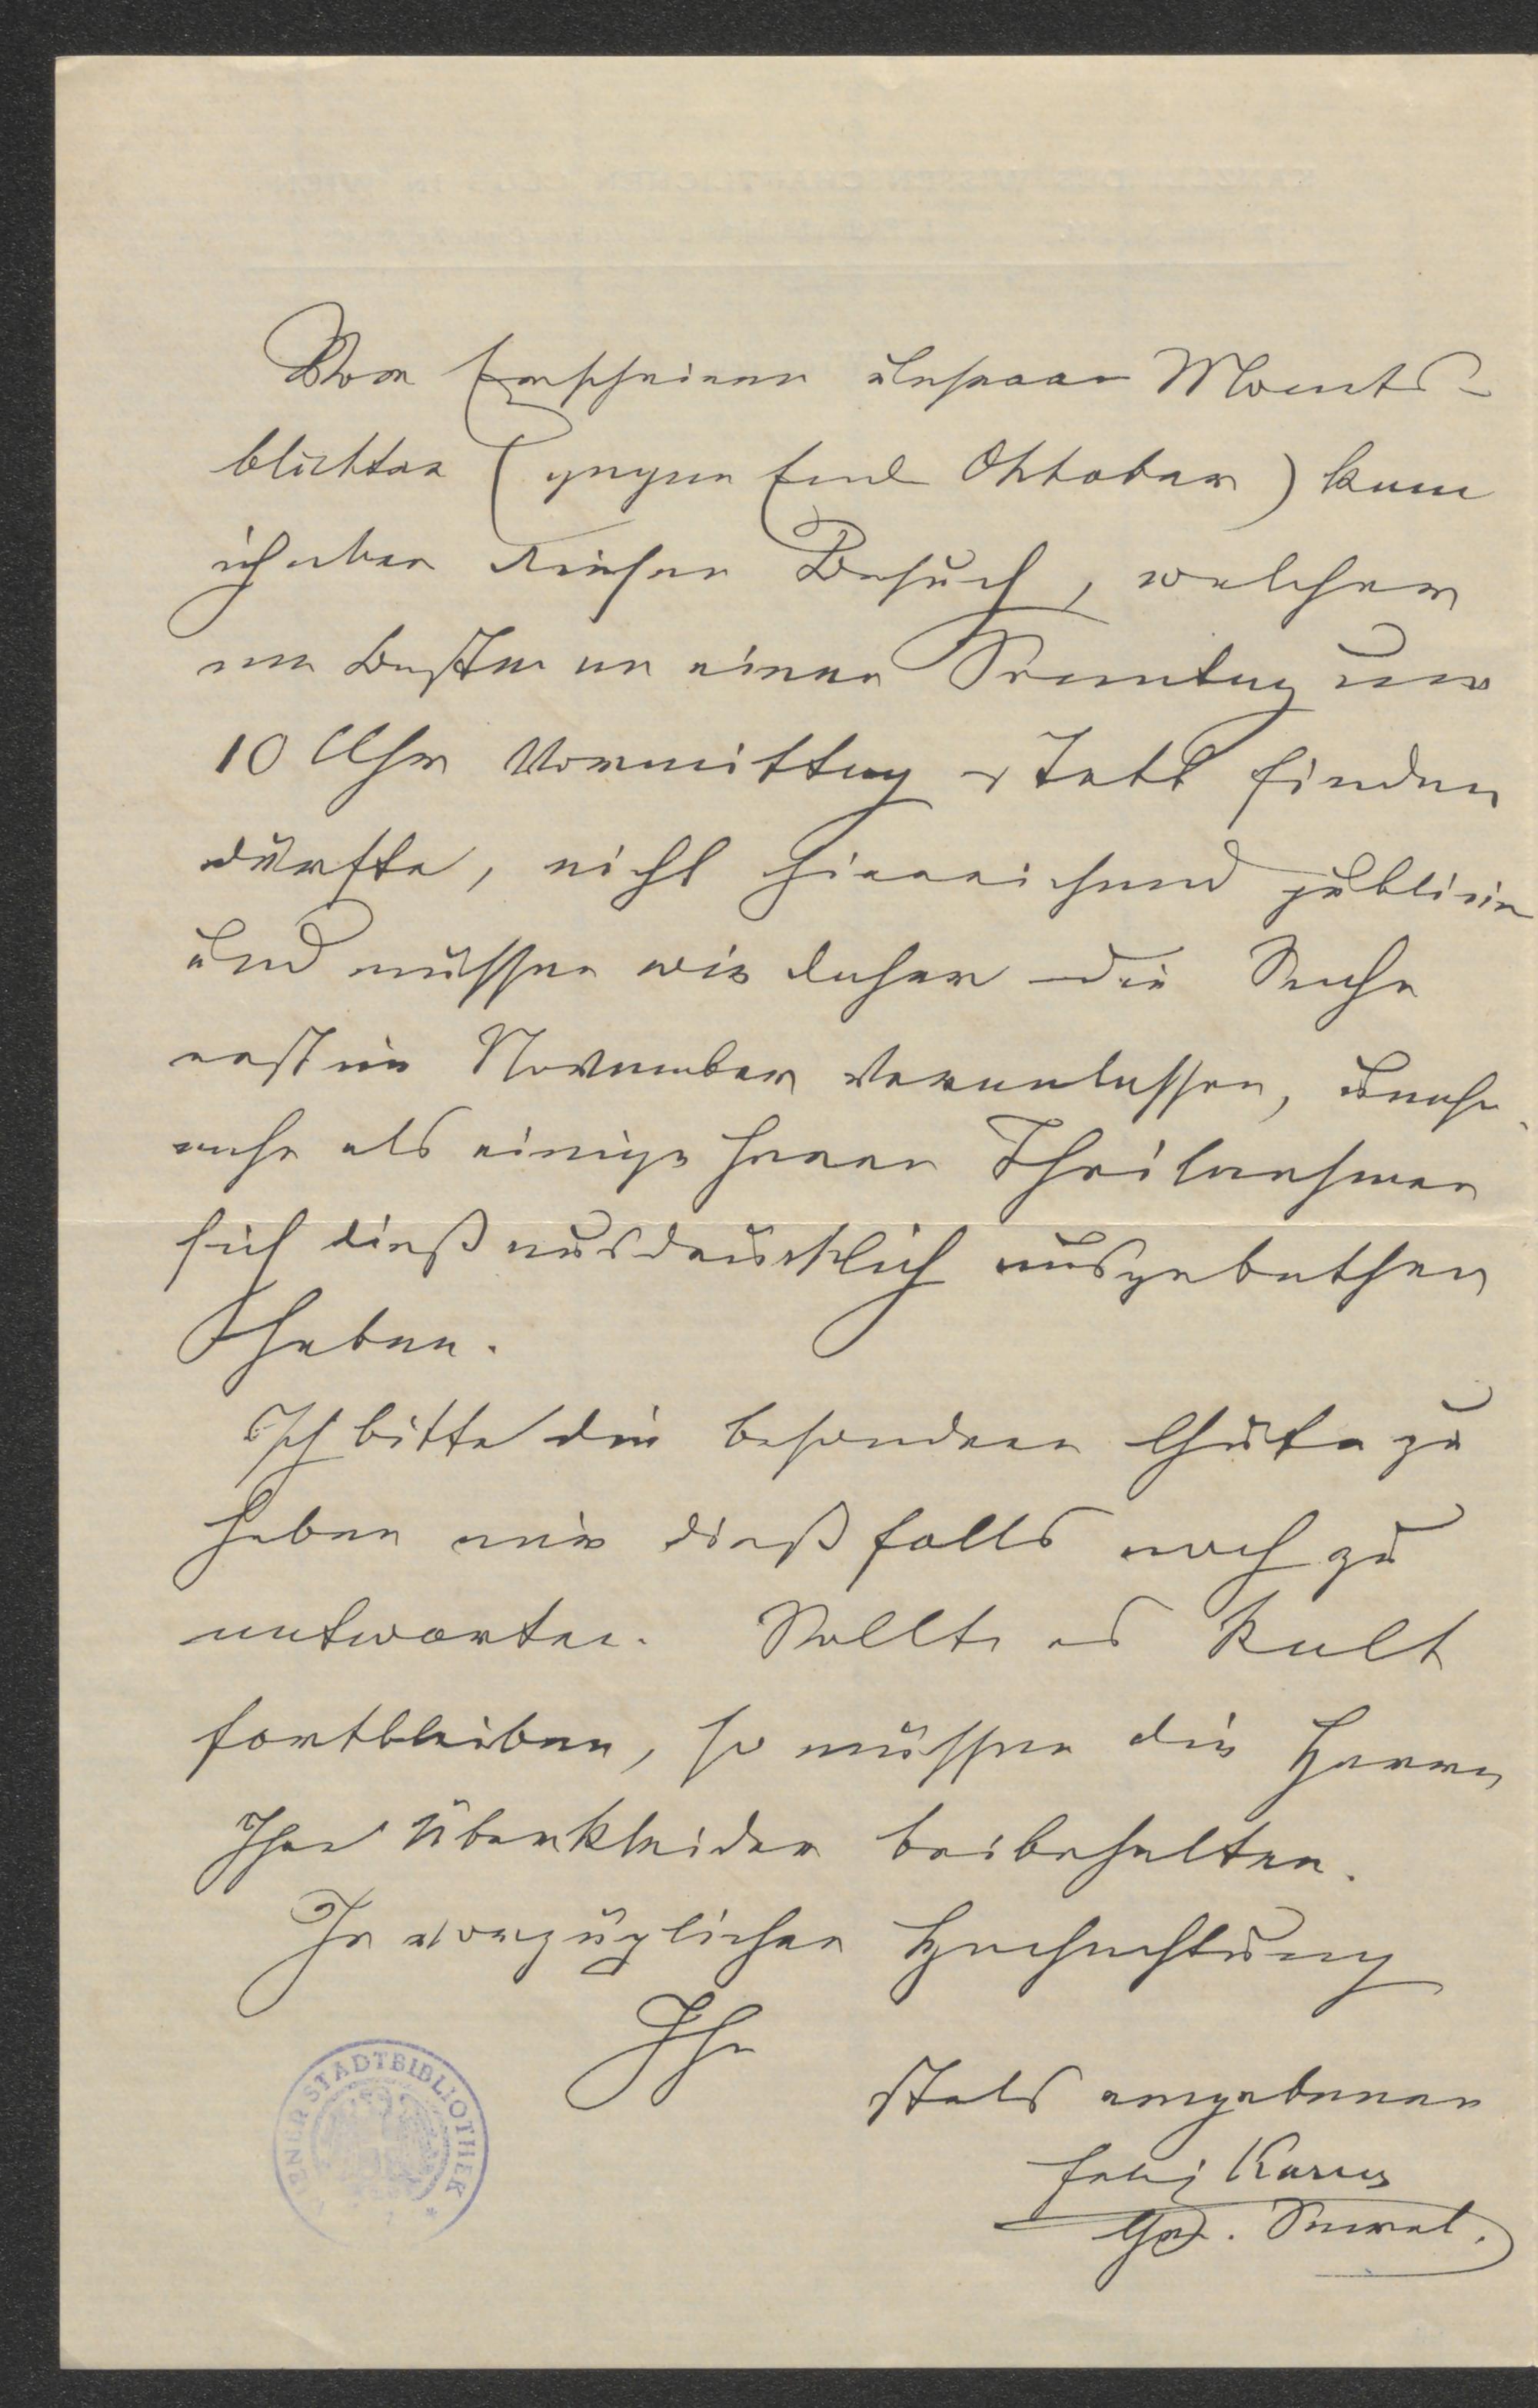 Vor Erscheinen unserer Monats-
blätter (gegen Ende Oktober) kann
ich aber diesen Besuch, welcher
am Besten an einem Sonntag um
10 Uhr Vormittag statt finden
dürfte, nicht hinreichend publicir
und müssen wir daher die Sache
erst im November veranlassen, umso
mehr als einige Herren Theilnehmer
sich dieß ausdrücklich ausgebethen
haben.
Ich bitte die besondere Güte zu
haben mir dießfalls noch zu
antworten. Sollte es kalt
fortbleiben, so müssen die Herren
Ihre Überkleider beibehalten.
In vorzüglicher Hochachtung
Ihr
stets ergebener
Felix Karrer
Gen. Secret.
WIENER STADTBIBLIOTHEK